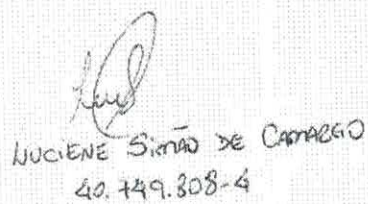 LUCIENE SIMÃO DE CAMARGO
40.749.808-4